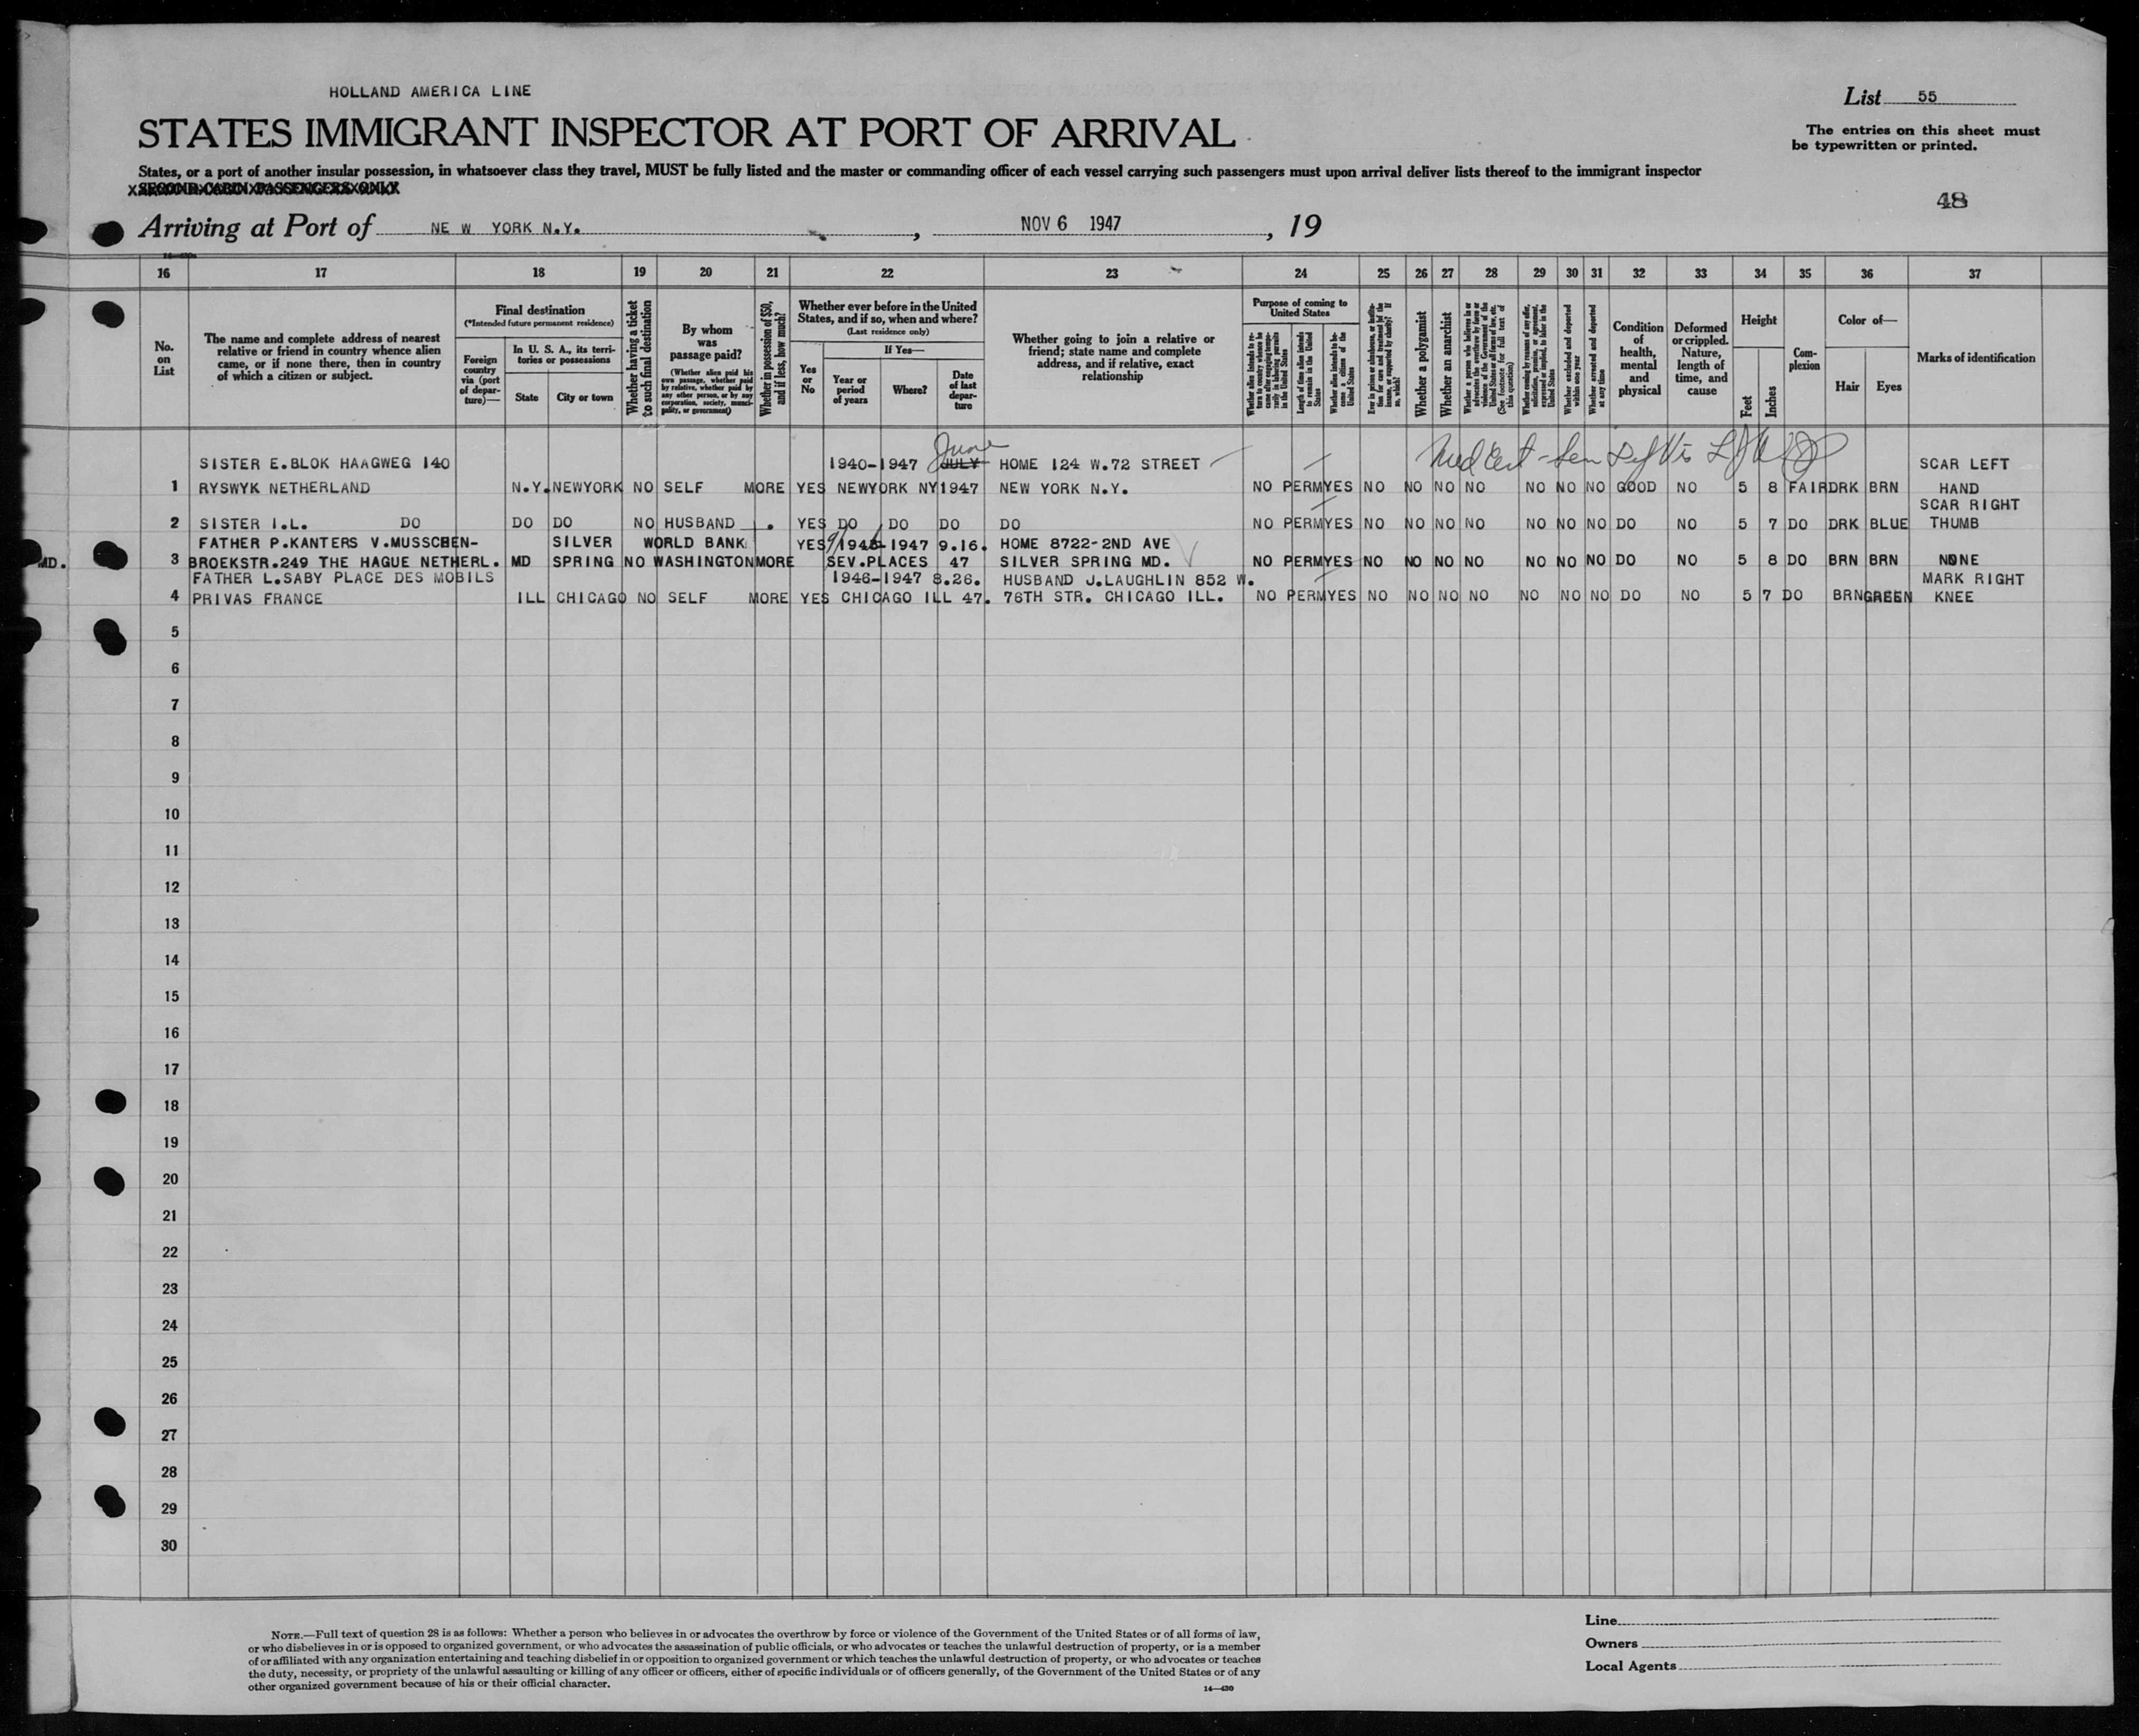 HOLLAND AMERICA LINE
List 55
STATES IMMIGRANT INSPECTOR AT PORT OF ARRIVAL
The entries on this sheet must
be typewritten or printed.
States, or a port of another insular possession, in whatsoever class they travel, MUST be fully listed and the master or commanding officer of each vessel carrying such passengers must upon arrival deliver lists thereof to the immigrant inspector
SECOND-CABIN PASSENGERS ONLY
48
Arriving at Port of NE W YORK N.Y. , NOV 6 1947 , 19
16 17 18 19 20 21 22 23 24 25 26 27 28 29 30 31 32 33 34 35 36 37
No. on List
The name and complete address of nearest relative or friend in country whence alien came, or if none there, then in country of which a citizen or subject.
Final destination
(*Intended future permanent residence)
Foreign country via (port of departure)—
In U. S. A., its territories or possessions
State
City or town
Whether having a ticket to such final destination
By whom was passage paid?
(Whether alien paid his own passage, whether paid by relative, whether paid by any other person, or by any corporation, society, municipality, or government)
Whether in possession of $50, and if less, how much?
Whether ever before in the United States, and if so, when and where?
(Last residence only)
Yes or No
If Yes—
Year or period of years
Where?
Date of last departure
Whether going to join a relative or friend; state name and complete address, and if relative, exact relationship
Purpose of coming to United States
Length of time alien intends to remain in the United States
Whether alien intends to become a citizen of the United States
Whether a polygamist
Whether an anarchist
Whether excluded and deported within one year
Whether arrested and deported at any time
Condition of health, mental and physical
Deformed or crippled. Nature, length of time, and cause
Height
Feet
Inches
Complexion
Color of—
Hair
Eyes
Marks of identification
June
SISTER E.BLOK HAAGWEG 140 1940-1947 JULY HOME 124 W.72 STREET SCAR LEFT
1 RYSWYK NETHERLAND N.Y. NEWYORK NO SELF MORE YES NEWYORK NY 1947 NEW YORK N.Y. NO PERM YES NO NO NO NO NO NO NO GOOD NO 5 8 FAIR DRK BRN HAND
SCAR RIGHT
2 SISTER I.L. DO DO DO NO HUSBAND . YES DO DO DO DO NO PERM YES NO NO NO NO NO NO NO DO NO 5 7 DO DRK BLUE THUMB
FATHER P.KANTERS V.MUSSCHEN- SILVER WORLD BANK YES -1947 9.16. HOME 8722-2ND AVE
MD. 3 BROEKSTR.249 THE HAGUE NETHERL. MD SPRING NO WASHINGTON MORE SEV.PLACES 47 SILVER SPRING MD. NO PERM YES NO NO NO NO NO NO NO DO NO 5 8 DO BRN BRN NONE
FATHER L.SABY PLACE DES MOBILS 1946-1947 8.26. HUSBAND J.LAUGHLIN 852 W. MARK RIGHT
4 PRIVAS FRANCE ILL CHICAGO NO SELF MORE YES CHICAGO ILL 47. 76TH STR. CHICAGO ILL. NO PERM YES NO NO NO NO NO NO NO DO NO 5 7 DO BRN GREEN KNEE
5
6
7
8
9
10
11
12
13
14
15
16
17
18
19
20
21
22
23
24
25
26
27
28
29
30
NOTE.—Full text of question 28 is as follows: Whether a person who believes in or advocates the overthrow by force or violence of the Government of the United States or of all forms of law,
or who disbelieves in or is opposed to organized government, or who advocates the assassination of public officials, or who advocates or teaches the unlawful destruction of property, or is a member
of or affiliated with any organization entertaining and teaching disbelief in or opposition to organized government or which teaches the unlawful destruction of property, or who advocates or teaches
the duty, necessity, or propriety of the unlawful assaulting or killing of any officer or officers, either of specific individuals or of officers generally, of the Government of the United States or of any
other organized government because of his or their official character.
14—430
Line
Owners
Local Agents